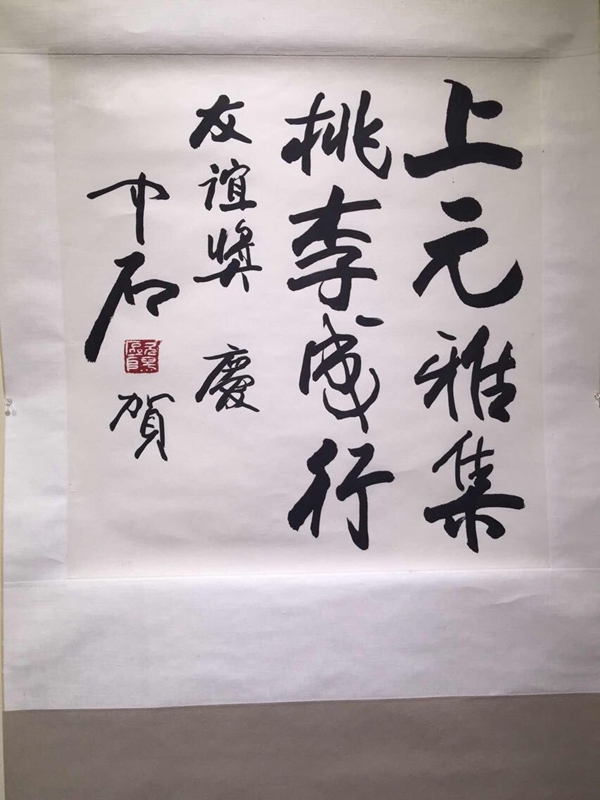 上元雅集
桃李成行
友谊奬 慶
中石 賀